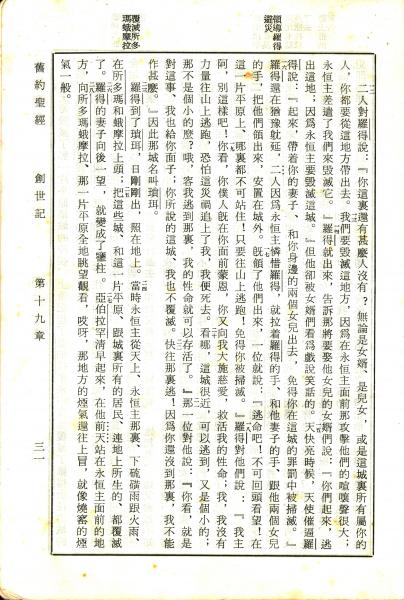 領導羅得
避災
二人對羅得說：『你這裏還有甚麼人沒有？無論是女婿、是兒女，或是這城裏所有屬你的
人，你都要從這地方帶出去。我們要毀滅這地方，因爲在永恒主面前那攻擊他們的喧嚷聲很大；
永恒主差遣了我們來毀滅它。』羅得就出來，告訴那將要娶他女兒的女婿們說：『你們起來，逃
出這地；因爲永恒主要毀滅這城。』但他卻被女婿們看爲戲說笑話的。天快亮時候，天使催逼羅
得說：『起來，帶着你的妻子、和你身邊的兩個女兒出去，免得你在這城的罪罰中被掃滅。』
羅得還在猶豫躭延，二人因爲永恒主憐惜羅得，就拉着羅得的手、和他妻子的手、跟他兩個女兒
的手，把他們領出來，安置在城外。旣領了他們出來，一位就說：『逃命吧！不可回頭看望！在
這一片平原上、哪裏都不可站住！只要往山上逃跑！免得你被掃滅。』羅得對他們說：『我主
阿，別這樣吧！你看，你僕人旣在你面前蒙恩，你又向我大施慈愛，救活我的性命；我、我沒有
力量往山上逃跑，恐怕這災禍追上了我，我便死去。看哪，這城很近，可以逃到，又是個小的；
那不是個小的麼？哦，容我逃到那裏，我的性命就可以存活了。』那一位對他說：『你看，就是
對這事、我也給你面子；你所說的這城、我也不覆滅。快往那裏逃！因爲你還沒到那裏，我不能
作甚麼。』因此那城名叫瑣珥。
覆滅所多
瑪蛾摩拉
羅得到了瑣珥，日剛剛出，照在地上。當時永恒主從天上、永恒主那裏、下硫磺雨跟火雨、
在所多瑪和蛾摩拉上頭；把這些城、和這一片平原、跟城裏所有的居民、連地上所生的、都覆滅
了。羅得的妻子向後一望，就變成了鹽柱。亞伯拉罕清早起來，在他前天站在永恒主面前的地
方，向所多瑪蛾摩拉、那一片平原全地眺望觀看，哎呀，那地方的煙氣還往上冒，就像燒窰的煙
氣一般。
舊約聖經 創世記 第十九章 三一